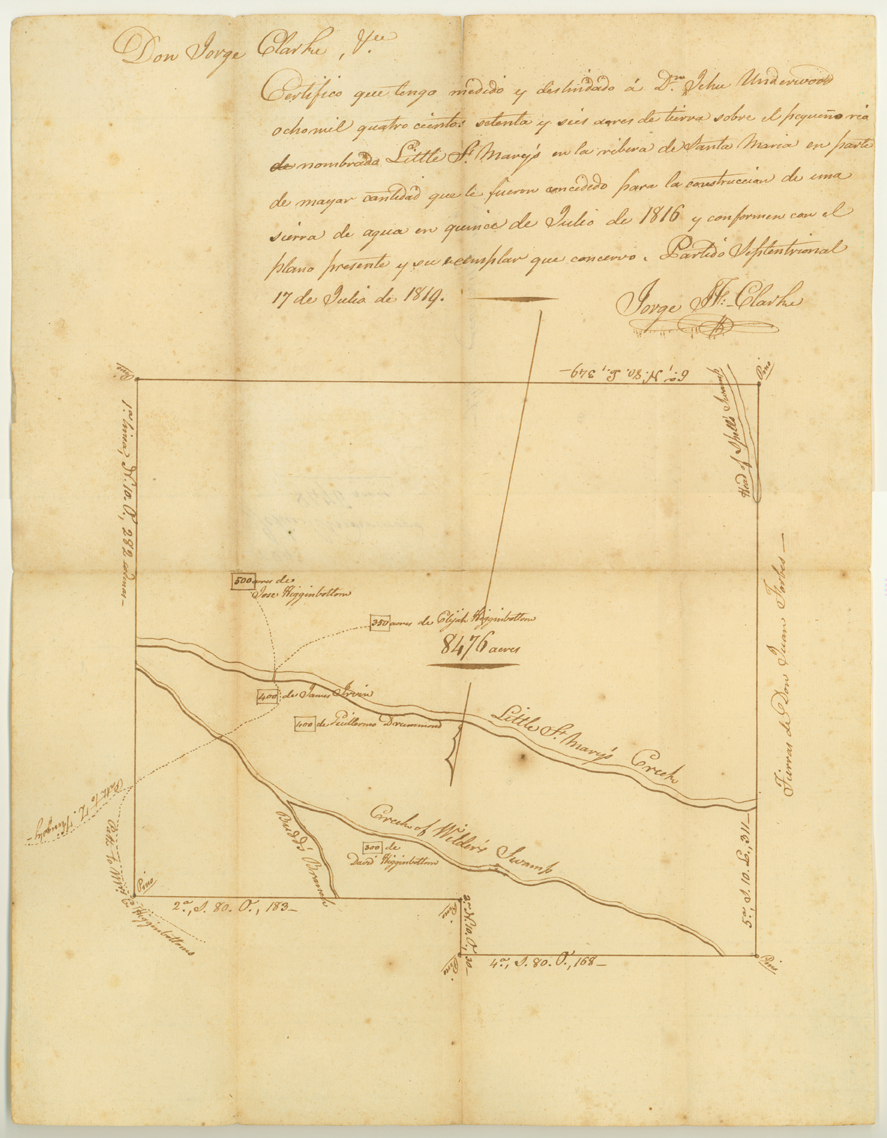 Don Jorge Clarke, &ce
Certifico que tengo medido y deslindado á Dn. Jehu Underwood
ocho mil quatro cientos setenta y seis acres de tierra sobre el pequeño rio
de nombrada Little St. Mary's en la ribera de Santa Maria en parte
de mayor cantidad que le fueron concedido para la construccion de una
sierra de agua en quince de Julio de 1816 y conformen con el
plano presente y su exemplar que concervo. Partido Septentrional
17 de Julio de 1819.
Jorge J. F. Clarke
6a., N. 80. E., 349-
Pino
Head of Spell's Swamp
1a. linea, N. 10. O., 282
500 acres de
Jose Higginbottom
350 acres de Elijah Higginbottom
8476 acres
400 de James Irvin
400 de Guillermo Drummond
Little St. Mary's Creek
Tierras de Don Juan Forbes-
Creek of Wilder's Swamp
Budd's Branch
300 de
David Higginbottom
Path to
Path to
Higginbottoms
Pino
2a., S. 80. O., 183-
Pino
3a. N. 10. O., 30-
Pino
4a., S. 80. O., 168-
5a., S. 10. E., 311-
Pino